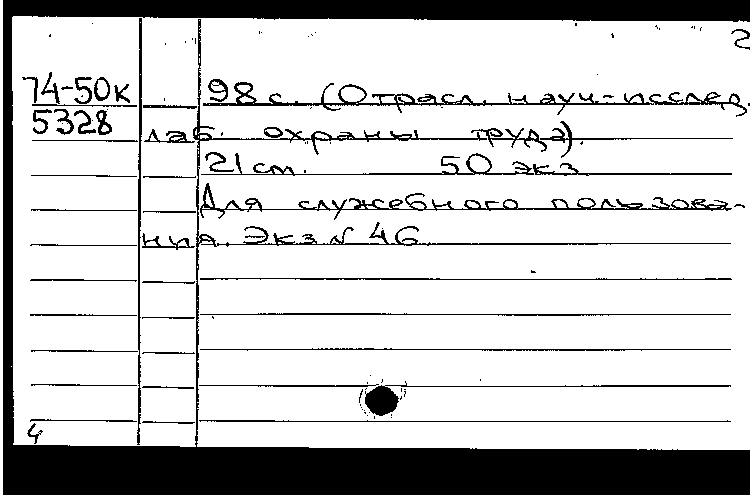 2
74-50к 98 с. (Отрасл. науч.-исслед.
5328 лаб. охраны труда).
21 см. 50 экз
Для служебного пользова-
ния. Экз № 46
4